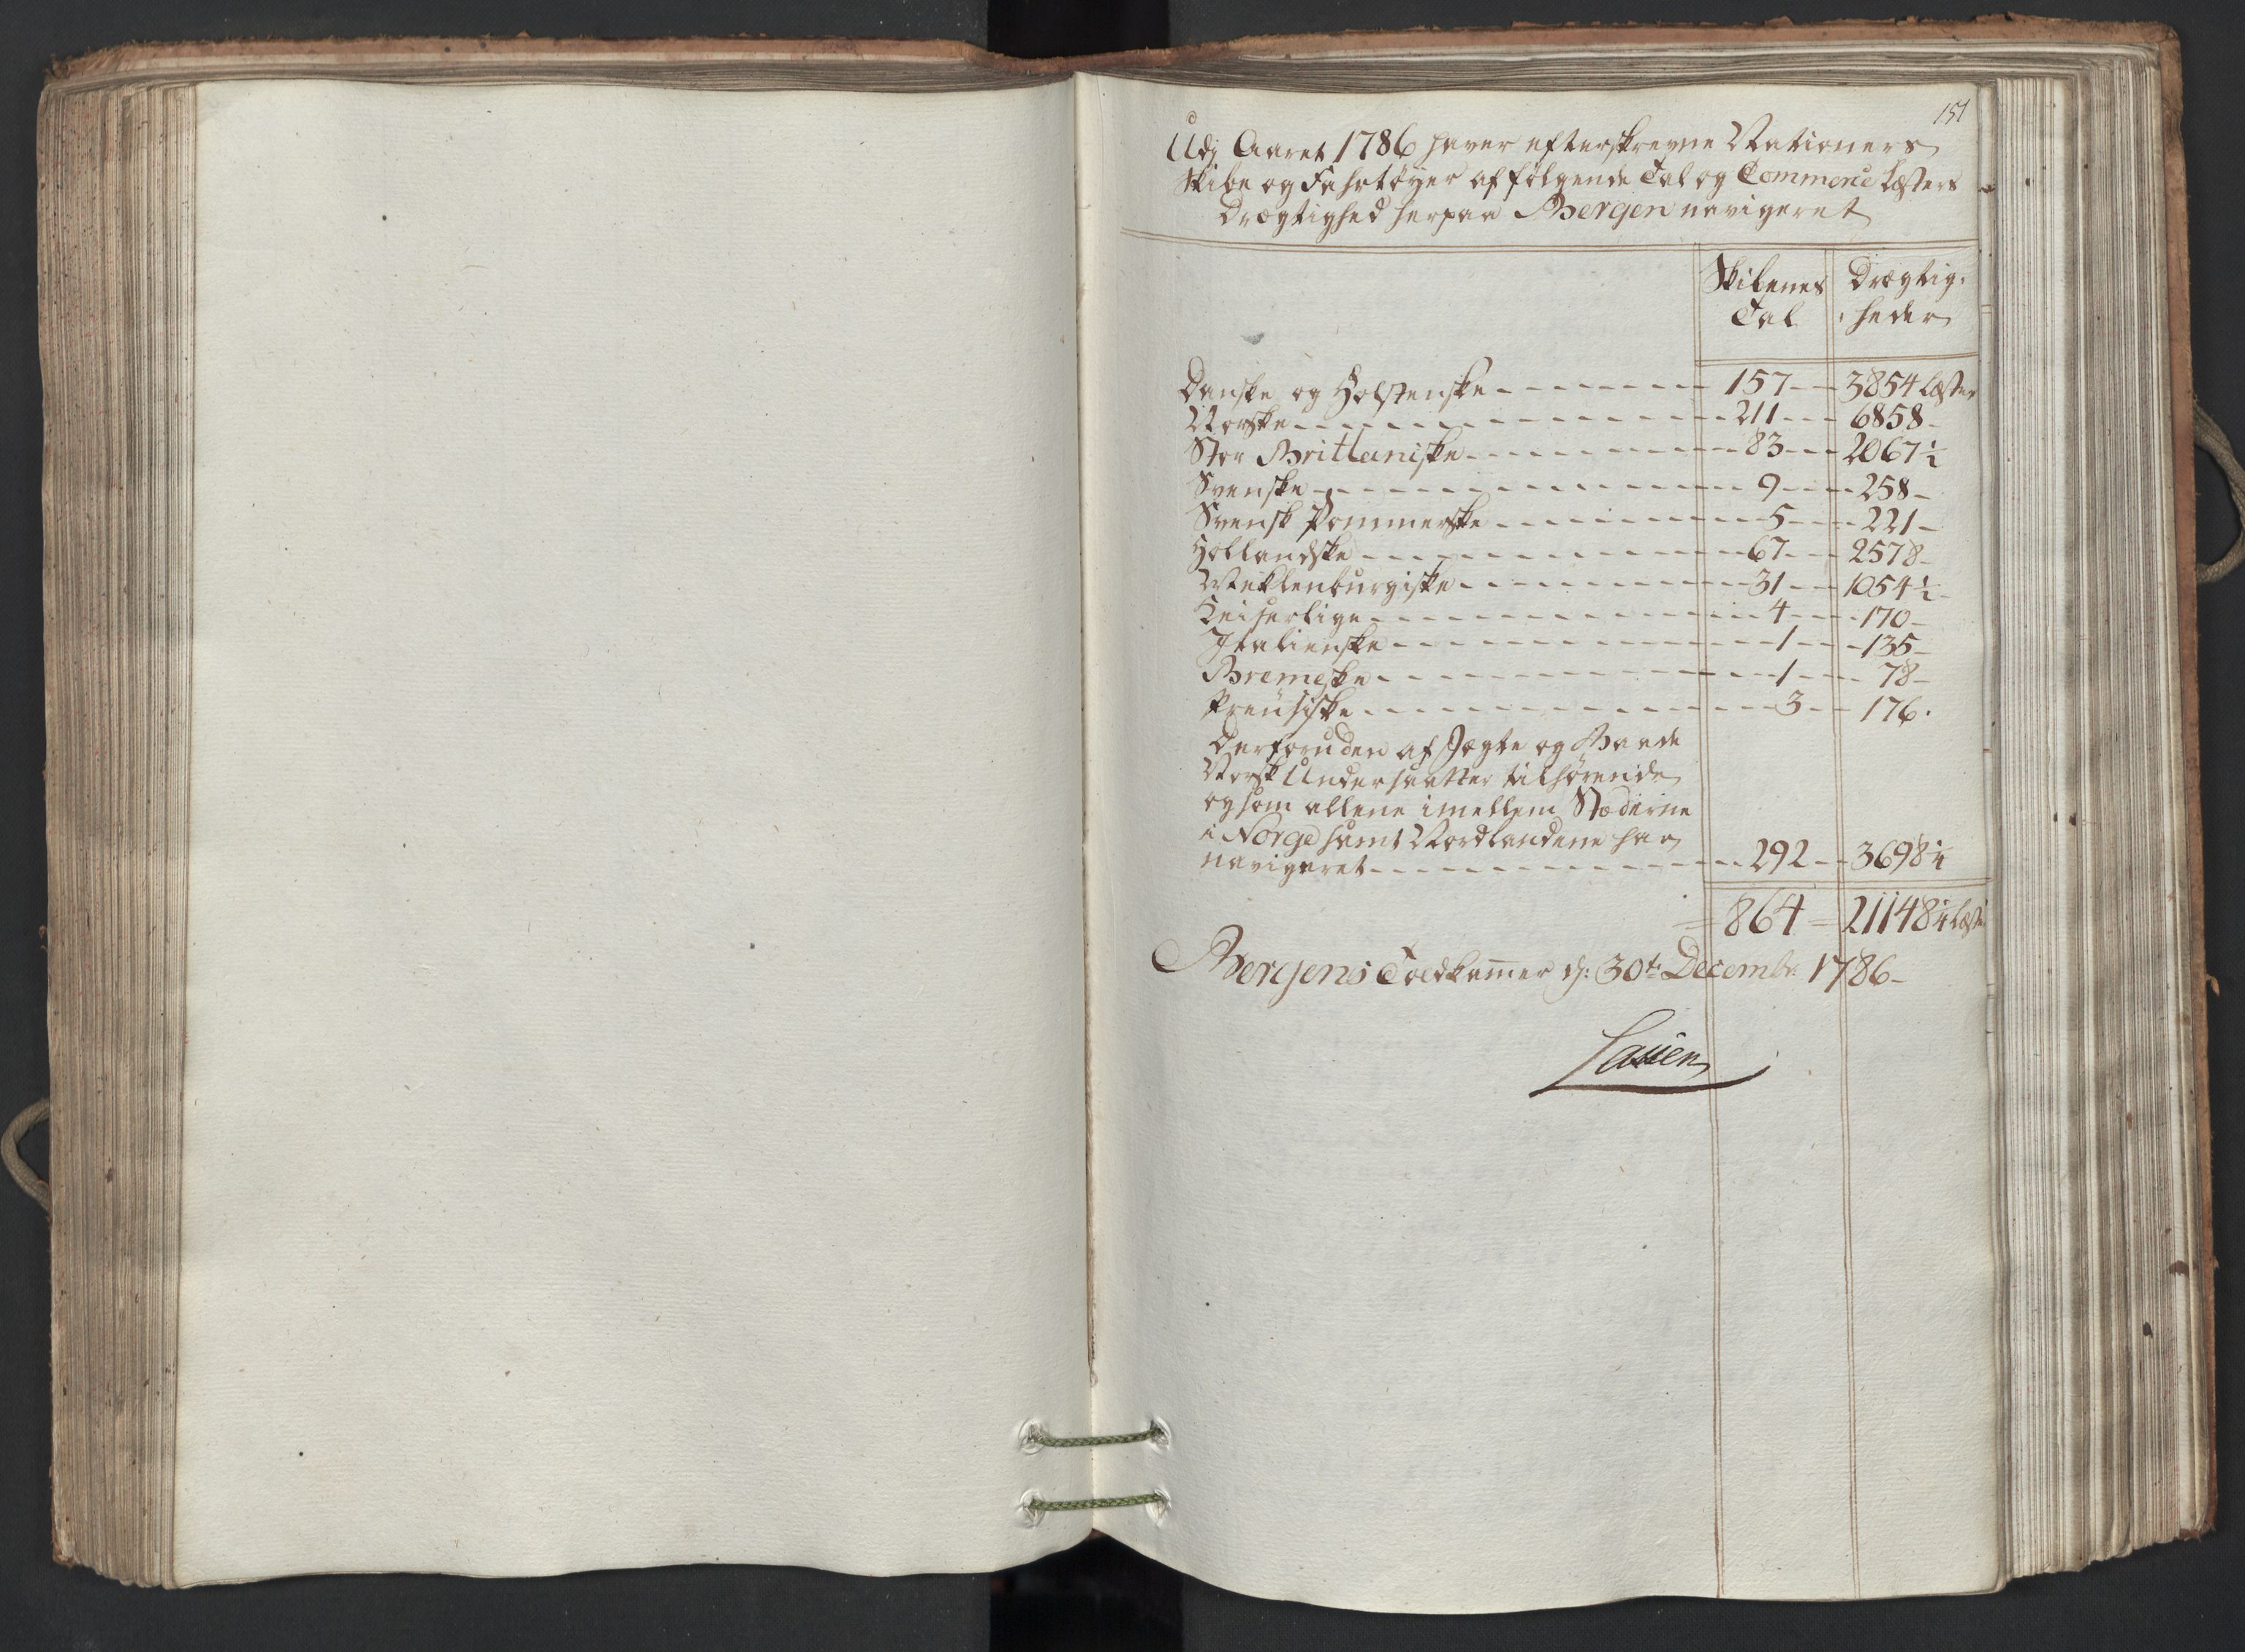 151
Udj Aaret 1786 haver efterskrevne Nationers
Skibe og Fahrtøyer af følgende Tal og Commerce Læsters
Drægtighed herpaa Bergen navigeret
Skibenes Tal
Drægtig-heder
Danske og Holstenske 157 3854 Læster
Norske 211 6858
Stor Brittaniske 83 2067 1/2
Svenske 9 258
Svensk Pommerske 5 221
Hollandske 67 2578
Meklenburgiske 31 1054 1/2
Keiserlige 4 170
Italienske 1 135
Bremeske 1 78
Preusiske 3 176
Derforuden af Jægte og Baade
Norsk Undersaatter tilhørende
og som allene imellem Stæderne
i Norge samt Nordlandene har
navigeret 292 3698 1/4
864 21148 1/4 Læst
Bergens Toldkammer d: 30te Decembr. 1786